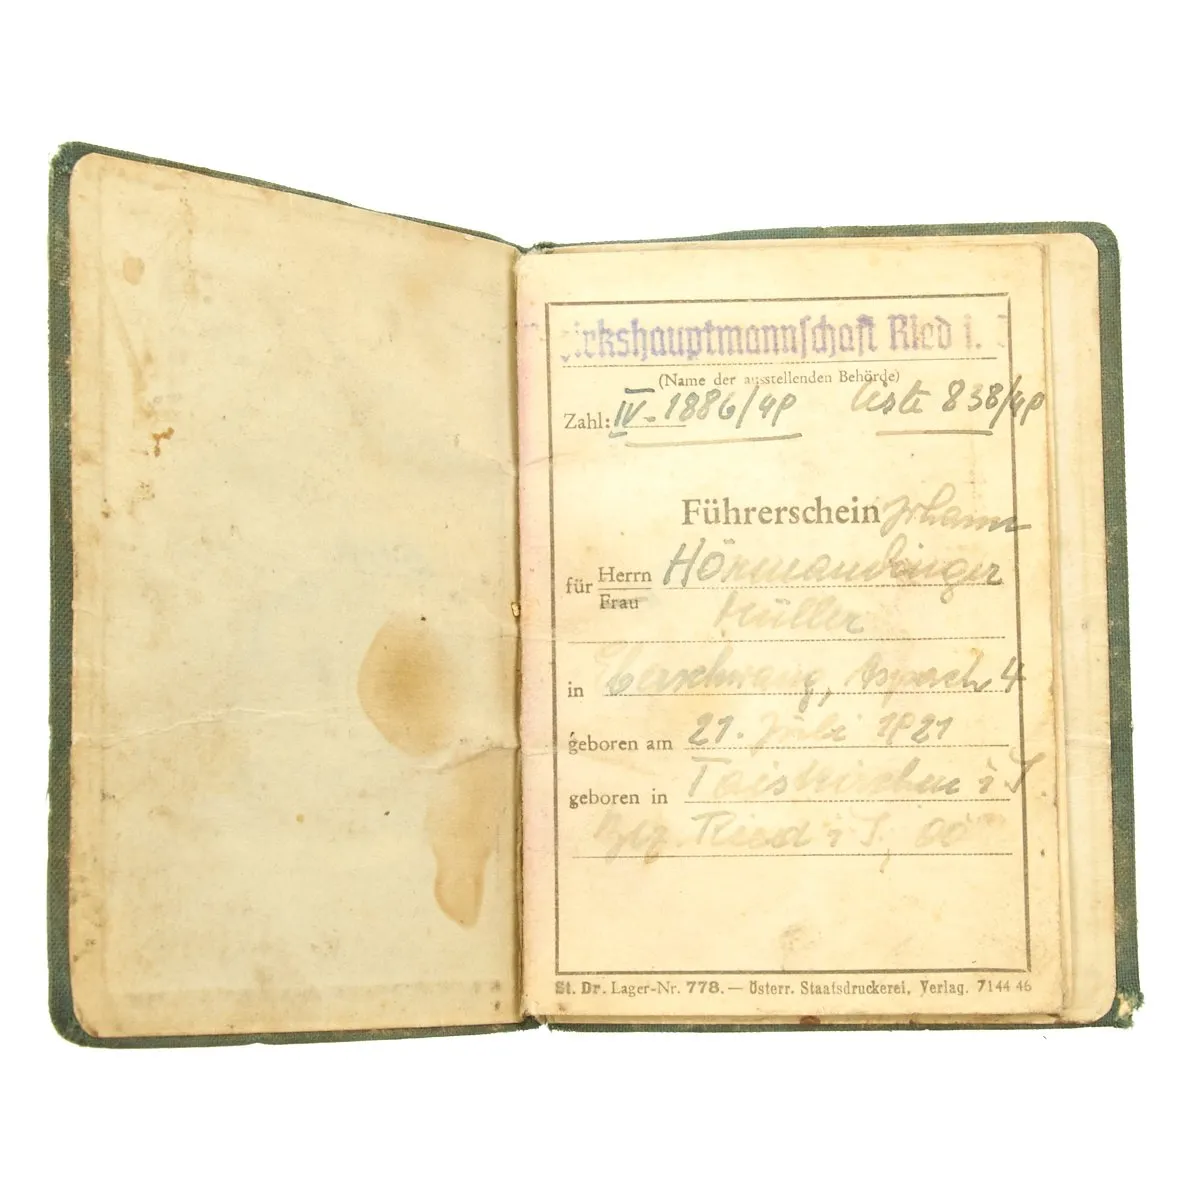 Bezirkshauptmannschaft Ried i. I
(Name der ausstellenden Behörde)
Zahl: IV-1886/49 Liste 838/49
Führerschein Johann
für Herrn Hörmandinger
Frau
Müller
in Eberschwang, Aspach 4
geboren am 21. Juli 1921
geboren in Taiskirchen i I
Bez. Ried i I, OÖ
St. Dr. Lager-Nr. 778. — Österr. Staatsdruckerei, Verlag. 7144 46